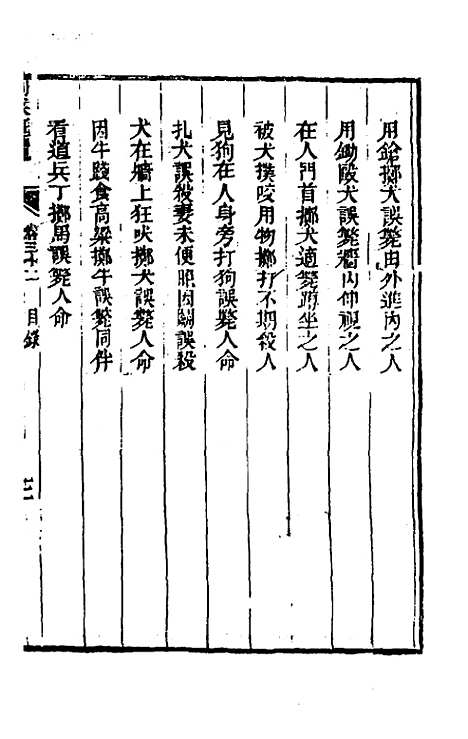 用鎗擲犬誤斃由外進內之人
用鋤毆犬誤斃牆內仰視之人
在人門首擲犬適斃蹲坐之人
被犬撲咬用物擲打不期殺人
見狗在人身旁打狗誤斃人命
扎犬誤殺妻未便照因鬭誤殺
犬在牆上狂吠擲犬誤斃人命
因牛踐食高粱擲牛誤斃同伴
看道兵丁擲馬誤斃人命
卷三十二 目錄